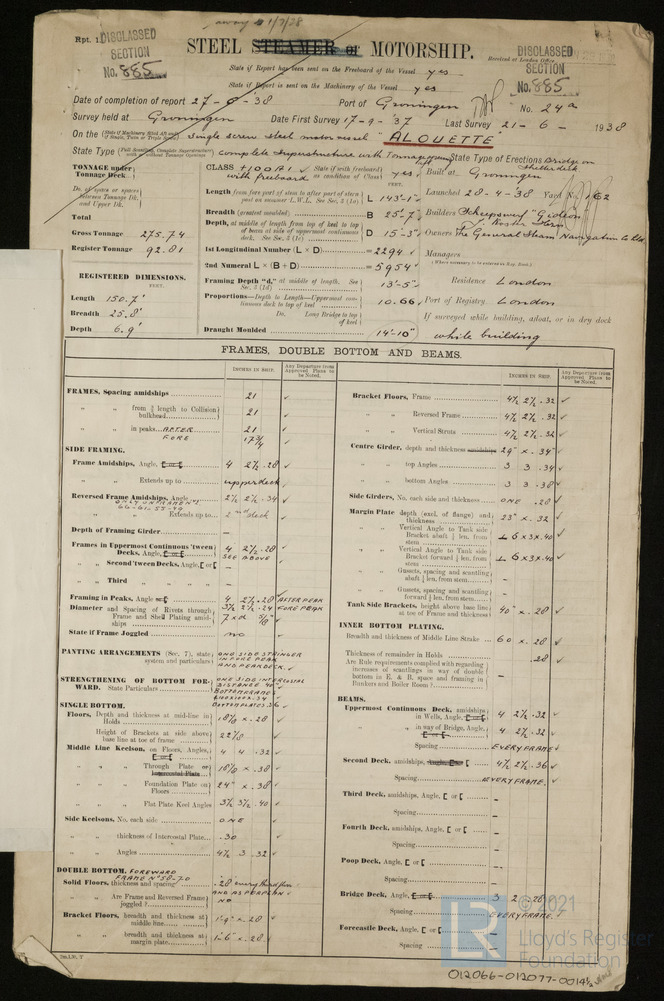 Rpt. 1.
DISCLASSED
SECTION
No. 885
STEEL STEAMER or MOTORSHIP.
DISCLASSED
SECTION
No. 885
Received at London Office
State if Report has been sent on the Freeboard of the Vessel yes
State if Report is sent on the Machinery of the Vessel yes
Date of completion of report 27-6-38 Port of Groningen No. 24a
Survey held at Groningen Date First Survey 17-9-'37 Last Survey 21-6-1938
On the single screw steel motor vessel "ALOUETTE"
State Type complete superstructure with Tonnage State Type of Erections Bridge on Shelterdeck
TONNAGE under Tonnage Deck
Total
Gross Tonnage 275.74
Register Tonnage 92.81
REGISTERED DIMENSIONS.
FEET.
Length 150.7'
Breadth 25.8'
Depth 6.9'
CLASS 100A1 State if (with freeboard as condition of Class) yes
with freeboard
FEET.
L 143'-1"
Breadth (greatest moulded) B 25'-7"
D 15'-3"
1st Longitudinal Number (L × D) = 2294
2nd Numeral L × (B + D) = 5954
Framing Depth "d," at middle of length. See Sec. 3 (1d) 13'-5"
Proportions—Depth to Length—Uppermost continuous deck to top of keel 10.66
Do. Long Bridge to top of keel
Draught Moulded 14'-10"
Built at Groningen
Launched 28-4-38 Yard No. 162
Builders Scheepswerf "Gideon"
Owners The General Steam Navigation Co Ltd.
Managers
Residence London
Port of Registry London
If surveyed while building, afloat, or in dry dock
while building
FRAMES, DOUBLE BOTTOM AND BEAMS.
INCHES IN SHIP.
Any Departure from Approved Plans to be Noted.
FRAMES, Spacing amidships 21
from ⅗ length to Collision bulkhead 21
in peaks AFTER 21
FORE 17¾
SIDE FRAMING.
Frame Amidships, Angle, 4 2½ .28
Extends up to upperdeck
Reversed Frame Amidships, Angle 2½ 2½ .34
Extends up to 2nd deck
Depth of Framing Girder –
Frames in Uppermost Continuous 'tween Decks, Angle, 4 2½ .28
SEE ABOVE
Second 'tween Decks, Angle, –
Third –
Framing in Peaks, Angle 4 2½ .28 AFTER PEAK
3½ 2½ .24 FORE PEAK
Diameter and Spacing of Rivets through Frame and Shell Plating amidships
State if Frame Joggled no
PANTING ARRANGEMENTS (Sec. 7), state system and particulars ONE SIDE STRINGER
IN FORE PEAK
AND PEAKDECK.
STRENGTHENING OF BOTTOM FORWARD. State Particulars ONE SIDE INTERCOSTAL
DISTANCE 40"
BOTTOMFRAMES
BOTTOM PLATES .36
SINGLE BOTTOM.
Floors, Depth and thickness at mid-line in Holds 18⅞ × .28
Height of Brackets at side above base line at toe of frame 22⅞
Middle Line Keelson, on Floors, Angles, 4 4 .32
Through Plate or Intercostal Plate 18⅞ × .38
Foundation Plate on Floors 24" × .38
Flat Plate Keel Angles 3½ 3½ .40
Side Keelsons, No. each side ONE
thickness of Intercostal Plate .30
Angles 4½ 3 .32
DOUBLE BOTTOM, FOREWARD
FRAME No 58-70
Solid Floors, thickness and spacing .28 every third floor
Are Frame and Reversed Frame joggled? NO
Bracket Floors, breadth and thickness at middle line 1'-9" × .28
breadth and thickness at margin plate 1'-6" × .28
INCHES IN SHIP.
Any Departure from Approved Plans to be Noted.
Bracket Floors, Frame 4½ 2½ .32
Reversed Frame 4½ 2½ .32
Vertical Struts 4½ 2½ .32
Centre Girder, depth and thickness amidships 29" × .34
top Angles 3 3 .34
bottom Angles 3 3 .38
Side Girders, No. each side and thickness ONE .28
Margin Plate depth (excl. of flange) and thickness 23" × .32
Vertical Angle to Tank side Bracket abaft ¼ len. from stem 6 × 3 × .40
Vertical Angle to Tank side Bracket forward ¼ len. from stem 6 × 3 × .40
Gussets, spacing and scantling abaft ¼ len. from stem –
Gussets, spacing and scantling forward ¼ len. from stem –
Tank Side Brackets, height above base line at toe of Frame and thickness 40" × .28
INNER BOTTOM PLATING.
Breadth and thickness of Middle Line Strake 60 × .28
Thickness of remainder in Holds .28
Are Rule requirements complied with regarding increases of scantlings in way of double bottom in E. & B. space and framing in Bunkers and Boiler Room? –
BEAMS.
Uppermost Continuous Deck, amidships in Wells, Angle, 4 2½ .32
in way of Bridge, Angle, 4 2½ .32
Spacing EVERY FRAME
Second Deck, amidships, Angle, 4½ 2½ .36
Spacing EVERY FRAME.
Third Deck, amidships, Angle, –
Spacing –
Fourth Deck, amidships, Angle, –
Spacing –
Poop Deck, Angle, –
Spacing –
Bridge Deck, Angle, 3 2 .28
Spacing EVERY FRAME.
Forecastle Deck, Angle, –
Spacing –
© 2021
LR
Lloyd's Register
Foundation
012066-012077-0014½